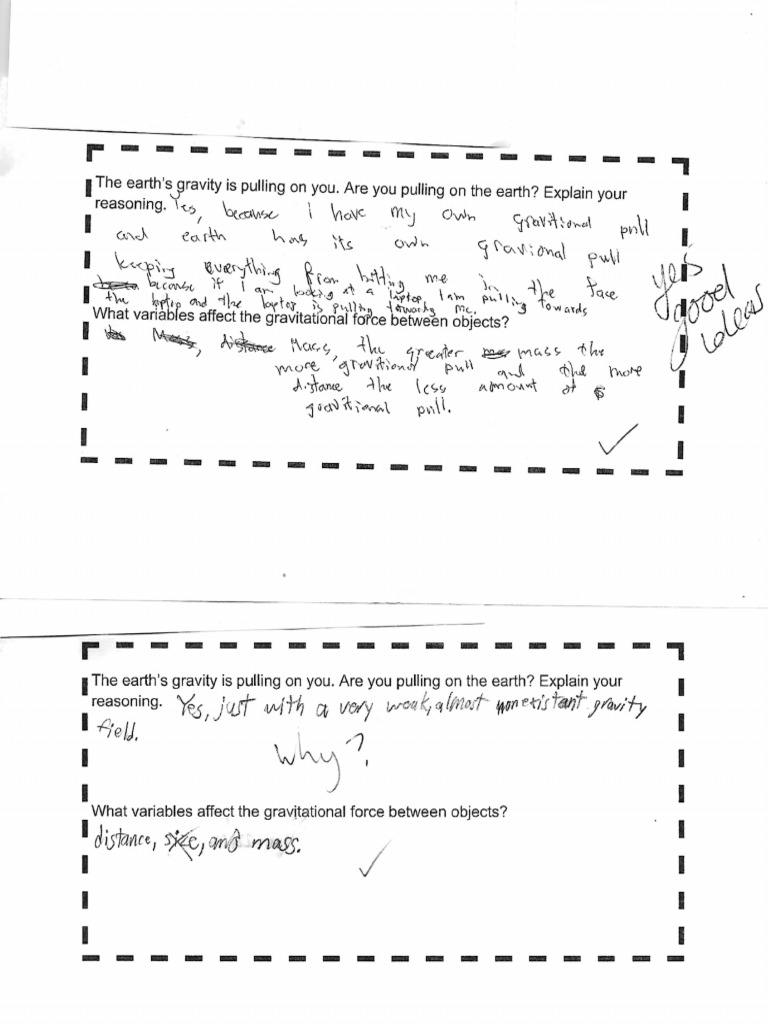 The earth's gravity is pulling on you. Are you pulling on the earth? Explain your
reasoning. Yes, because i have my own gravitional pull
and earth has its own gravional pull
keeping everything from hitting me in the face
because if I am looking at a laptop I am pulling towards
the laptop and the laptop is pulling towards me.
yes
good
ideas
What variables affect the gravitational force between objects?
Mass, distance Mass, the greater mass the
more gravitional pull and the more
distance the less amount of
gravitional pull.
The earth's gravity is pulling on you. Are you pulling on the earth? Explain your
reasoning. Yes, just with a very weak, almost nonexistant gravity
field.
why?
What variables affect the gravitational force between objects?
distance, size, and mass.